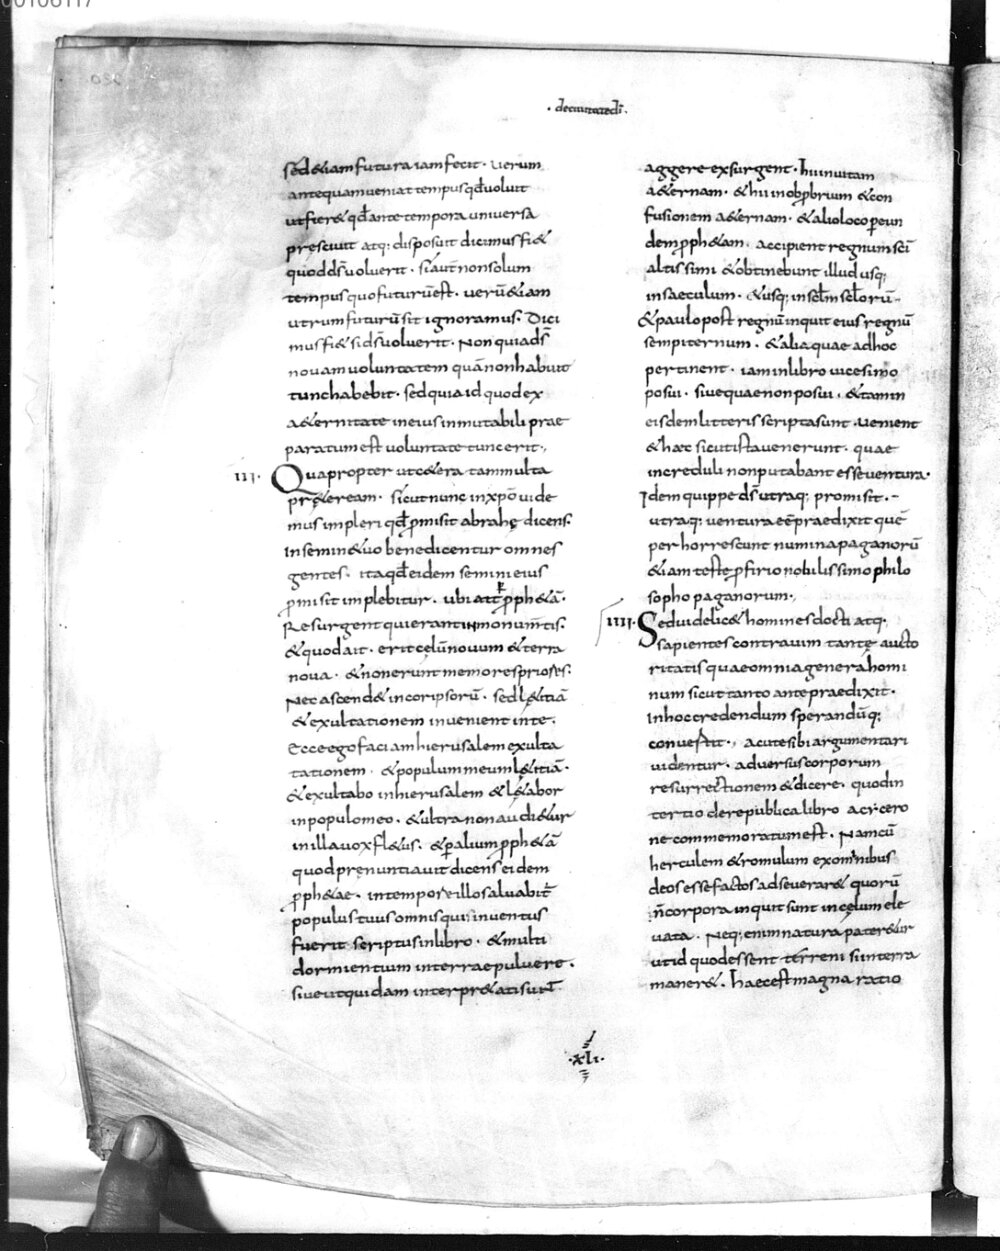 00106117
· deciuitatedi ·
sed&iamfutura iamfecit · uerum
antequamueniat tempusqđuoluit
utfier& qđante tempora uniuersa
presciuit atq; disposuit dicimusfi&
quoddsuoluerit · siaut̄nonsolum
tempusquofuturūest · uerū&iam
utrumfuturūsit ignoramus · Dici
musfi& sidsuoluerit · Nonquiads̄
nouamuoluntatem quānonhabuit
tunchabebit · sedquiaid quodex
a&ernitate ineiusinmutabili prae
paratumest uoluntatetuncerit ·,
III · Quapropter utc&era tammulta
pr&eream · sicutnunc inxp̄o uide
mus impleri qđpmisit abrahę dicens ·
Insemin&uo benedicentur omnes
gentes · itaqđeidem semini eius
pmisit implebitur · ubi ait pph&ā ·
Resurgentquierantinmonum̄tis ·
& quodait · erit cęlūnouum &terra
noua · & nonerunt memorespriores ·
Nec ascend& incoripsorū · sedl&itiā
& exultationem inuenient inte ·
Ecceegofaciamhierusalem exulta
tationem · & populummeuml&itiā ·
& exultabo inhierusalem & l&abor
inpopulomeo · & ultranonaudi&ur
inillauoxfl&us · & palium pph&ā
quodprenuntiauit dicens eidem
pph&ae · intempore illosaluabit̄
populus tuus omnisqui inuentus
fuerit scriptus inlibro · & multi
dormientium interraepuluere ·
siueutquidam interpr&atisunt̄
aggere exsurgent · hiinuitam
a&ernam · & hiinobpbrium & con
fusionem a&ernam · & alioloco peun
dem pph&am · accipient regnum sci
altissimi & obtinebunt illud usq;
insaeculum · & usq; in sclm sclorū ·
& paulopost regnū inquit eius regnū
sempiternum · & alia quae adhoc
pertinent · iam inlibro uicesimo
posui · siue quaenonposui · & tamin
eisdemlitteris scriptasunt · uenient
& haec sicutistauenerunt · quae
increduli nonputabant esseuentura ·
Idem quippe ds̄ utraq; promisit ·
utraq; uentura eē praedixit quē
perhorrescunt numina paganorū
& iam teste pfirionobilissimo philo
sopho paganorum ·,
IIII · Seduidelic& hominesdocti atq;
sapientes contrauim tantę aucto
ritatis quae omnia genera homi
num sicut tanto ante praedixit ·
Inhoc credendum sperandūq;
conuertit ·, acute sibi argumentari
uidentur · aduersus corporum
resurrectionem & dicere · quodin
tertio derepublica libro a cicero
ne commemoratumest · Namcū
herculem & romulum exominibus
deos essefactos adseuerar& quorū
n̄corpora inquit sunt incęlum ele
uata · Neq; enim natura pater&ur
utid quodessent terreni siinterra
maner& · haecest magna ratio
· XLI ·